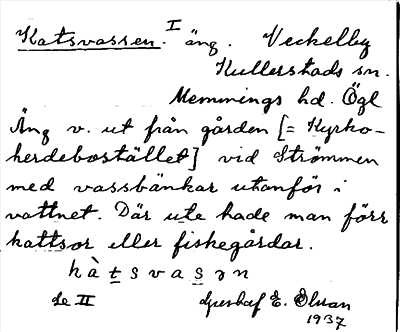 Katsvassen. I äng. Veckelby
Kullerstads sn.
Memmings hd. Ögl
Äng v. ut från gården [= Kyrko-
herdebostället] vid Strömmen
med vassbänkar utanför i
vattnet. Där ute hade man förr
kattsor eller fiskegårdar.
kàtsvasən
Se II E. Olson
1937